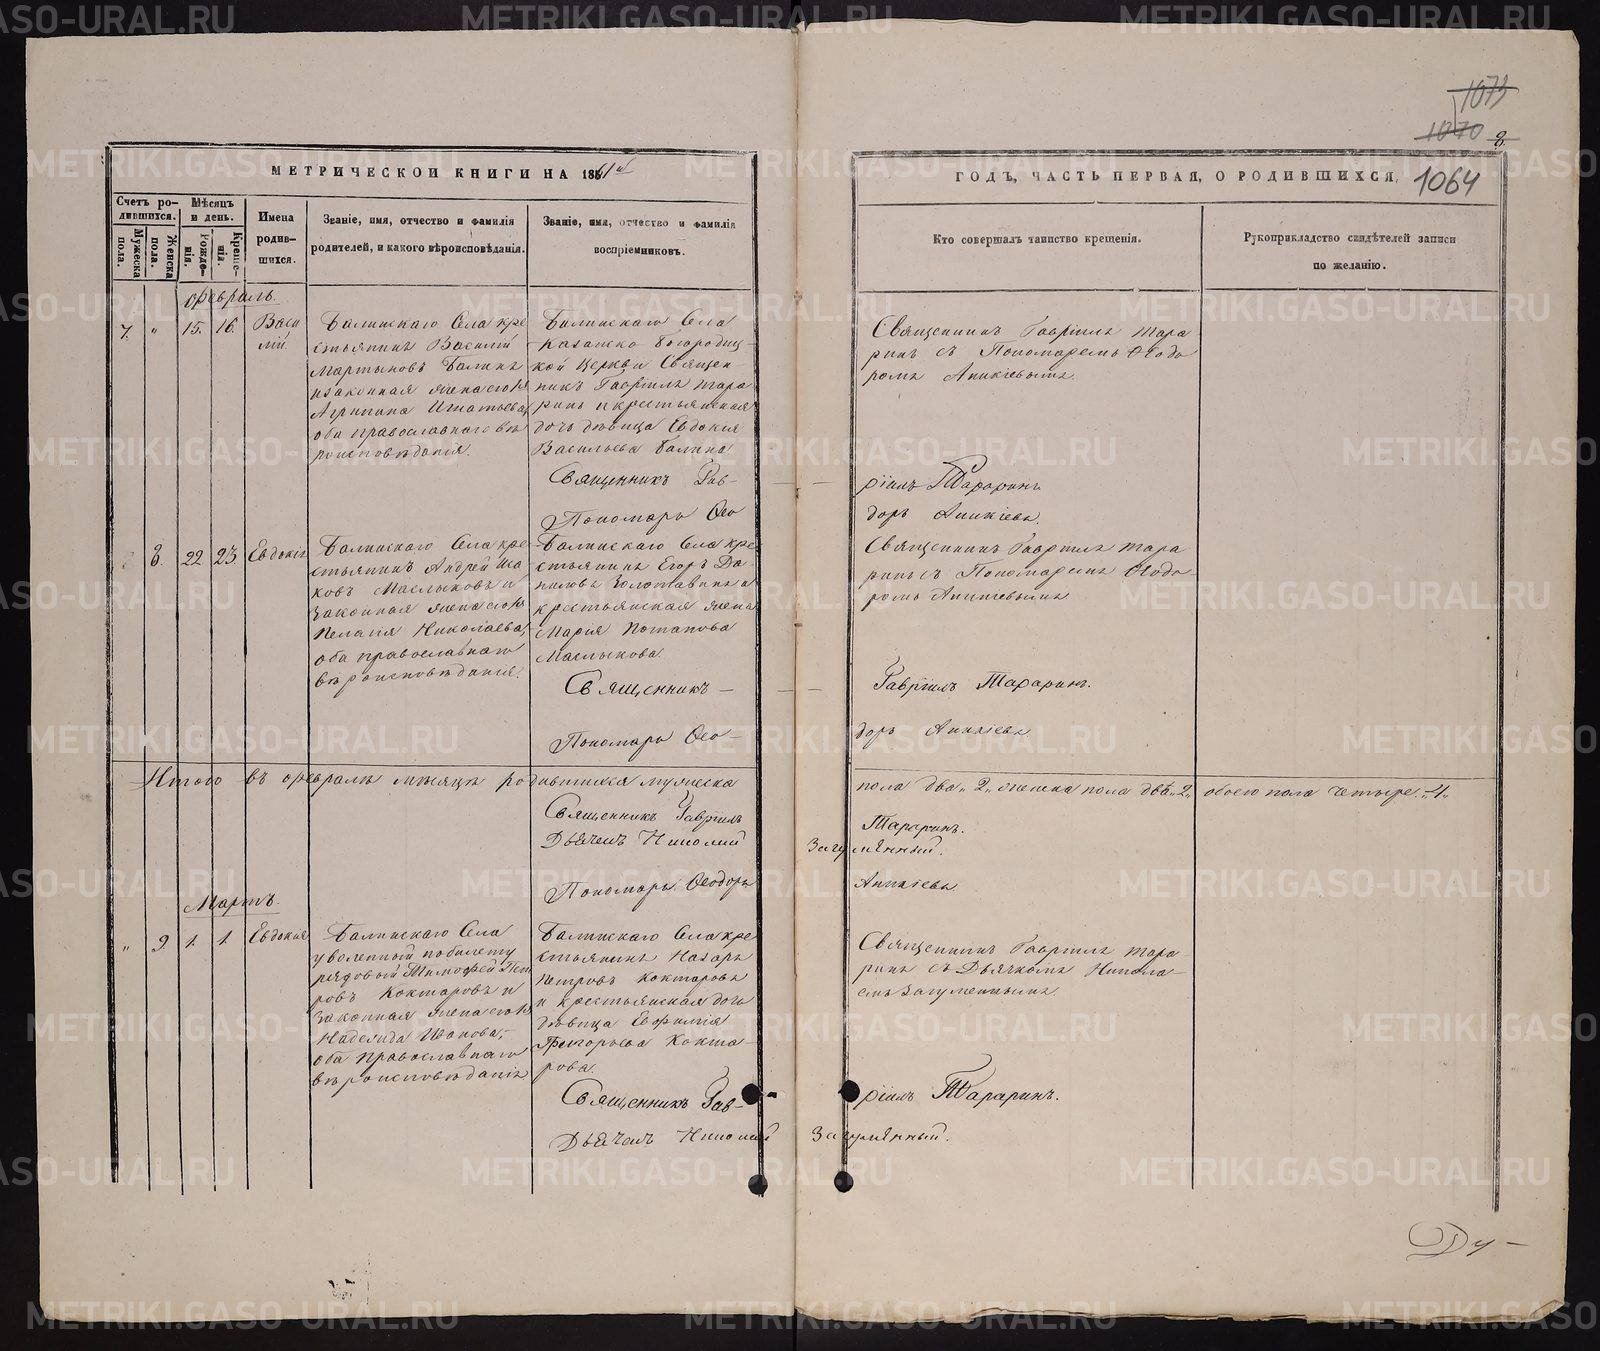 1073
1070
8.
1064
МЕТРИЧЕСКОЙ КНИГИ НА 1861й
ГОДЪ, ЧАСТЬ ПЕРВАЯ, О РОДИВШИХСЯ.
Счетъ родившихся.
Мужеска пола.
Женска пола.
Мѣсяцъ и день.
Рожденія.
Крещенія.
Имена родившихся.
Званіе, имя, отчество и фамилія
родителей, и какого вѣроисповѣданія.
Званіе, имя, отчество и фамилія
воспріемниковъ.
Кто совершалъ таинство крещенія.
Рукоприкладство свидѣтелей записи
по желанію.
Февраль.
7. " 15. 16. Васи
лій.
Балинскаго Села кре
стьянинъ Василій
Мартыновъ Балинъ
и законная жена его
Агрипина Игнатьева,
оба православнаго вѣ
роисповѣданія.
Балинскаго Села
Казанско Богородиц-
кой Церкви Священ
никъ Гавріилъ Тара
ринъ и крестьянская
дочь дѣвица Евдокия
Васильева Балина
Священникъ Гавріилъ Тара
ринъ съ Пономаремъ Ѳеодо
ромъ Аникіевымъ.
Священникъ Гав-
ріилъ Тараринъ
Пономарь Ѳео
доръ Аникіевъ.
8. 22 23. Евдокія
Балинскаго Села кре
стьянинъ Андрей Иа
ковъ Маслыковъ и
законная жена его
Пелагія Николаева,
оба православнаго
вѣроисповѣданія.
Балинскаго Села кре
стьянинъ Егоръ Да-
ниловъ и
крестьянская жена
Мария Потапова
Маслыкова.
Священникъ Гавріилъ Тара
ринъ съ Пономаремъ Ѳеодо
ромъ Аникіевымъ
Священникъ —
Гавріилъ Тараринъ.
Пономарь Ѳео —
доръ Аникіевъ
Итого въ Февралѣ мѣсяцѣ родившихся мужеска
пола два „2„ женска пола двѣ „2„ обоего пола четыре. „4„
Священникъ Гавріилъ
Тараринъ.
Дьячекъ Николай
Загумѣнный.
Пономарь Ѳеодоръ
Аникіевъ.
Мартъ.
" 9. 1. 1. Евдокия
Балинскаго Села
уволенный по билету
рядовый Тимофей Пет
ровъ Кокшаровъ и
законная жена его
Надежда Иванова,
оба православнаго
вѣроисповѣданія
Балинскаго Села кре
стьянинъ Назаръ
Петровъ Кокшаровъ
и крестьянская дочь
дѣвица Евфимія
Григорьева Кокша
рова.
Священникъ Гавріилъ Тара
ринъ съ Дьячкомъ Никола-
емъ Загуменнымъ.
Священникъ Гав-
ріилъ Тараринъ.
Дьячекъ Николай
Загумѣнный.
Ду-
METRIKI.GASO-URAL.RU